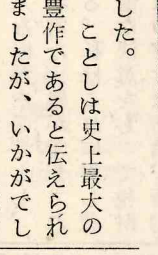 した。
ことしは史上最大の
豊作であると伝えられ
ましたが、いかがでし